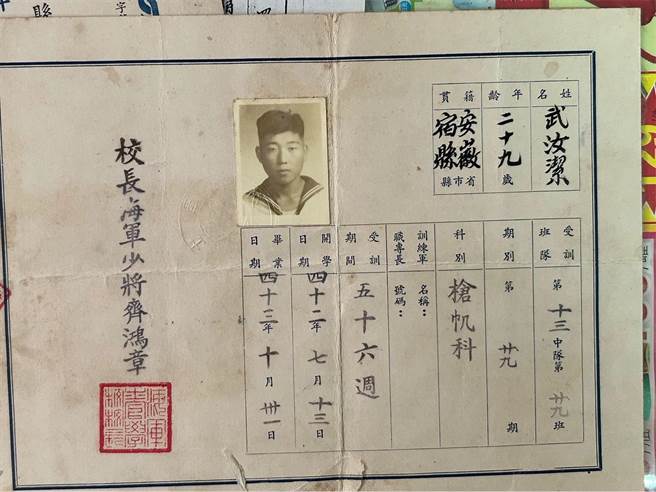 姓名
武汝潔
年齡
二十九歲
籍貫
安徽省市
宿縣縣
受訓班隊
第十三中隊第廿九班
期別
第廿九期
科別
槍帆科
訓練軍職專長
名稱：
號碼：
受訓期間
五十六週
開學日期
四十二年七月十三日
畢業日期
四十三年十月卅一日
校長海軍少將齊鴻章